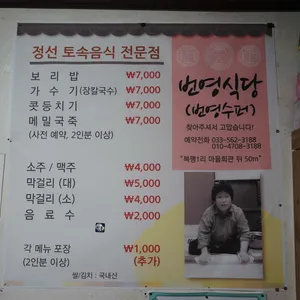 정선 토속음식 전문점
보 리 밥 ₩7,000
가 수 기 (장칼국수) ₩7,000
콧등치기 ₩7,000
메밀국죽 ₩7,000
(사전 예약, 2인분 이상)
소주 / 맥주 ₩4,000
막걸리 (대) ₩5,000
막걸리 (소) ₩4,000
음 료 수 ₩2,000
각 메뉴 포장 ₩1,000
(2인분 이상) (추가)
쌀/김치 : 국내산
번영식당
(번영수퍼)
찾아주셔서 고맙습니다!
예약전화 033-562-3188
010-4708-3188
"북평1리 마을회관 뒤 50m"